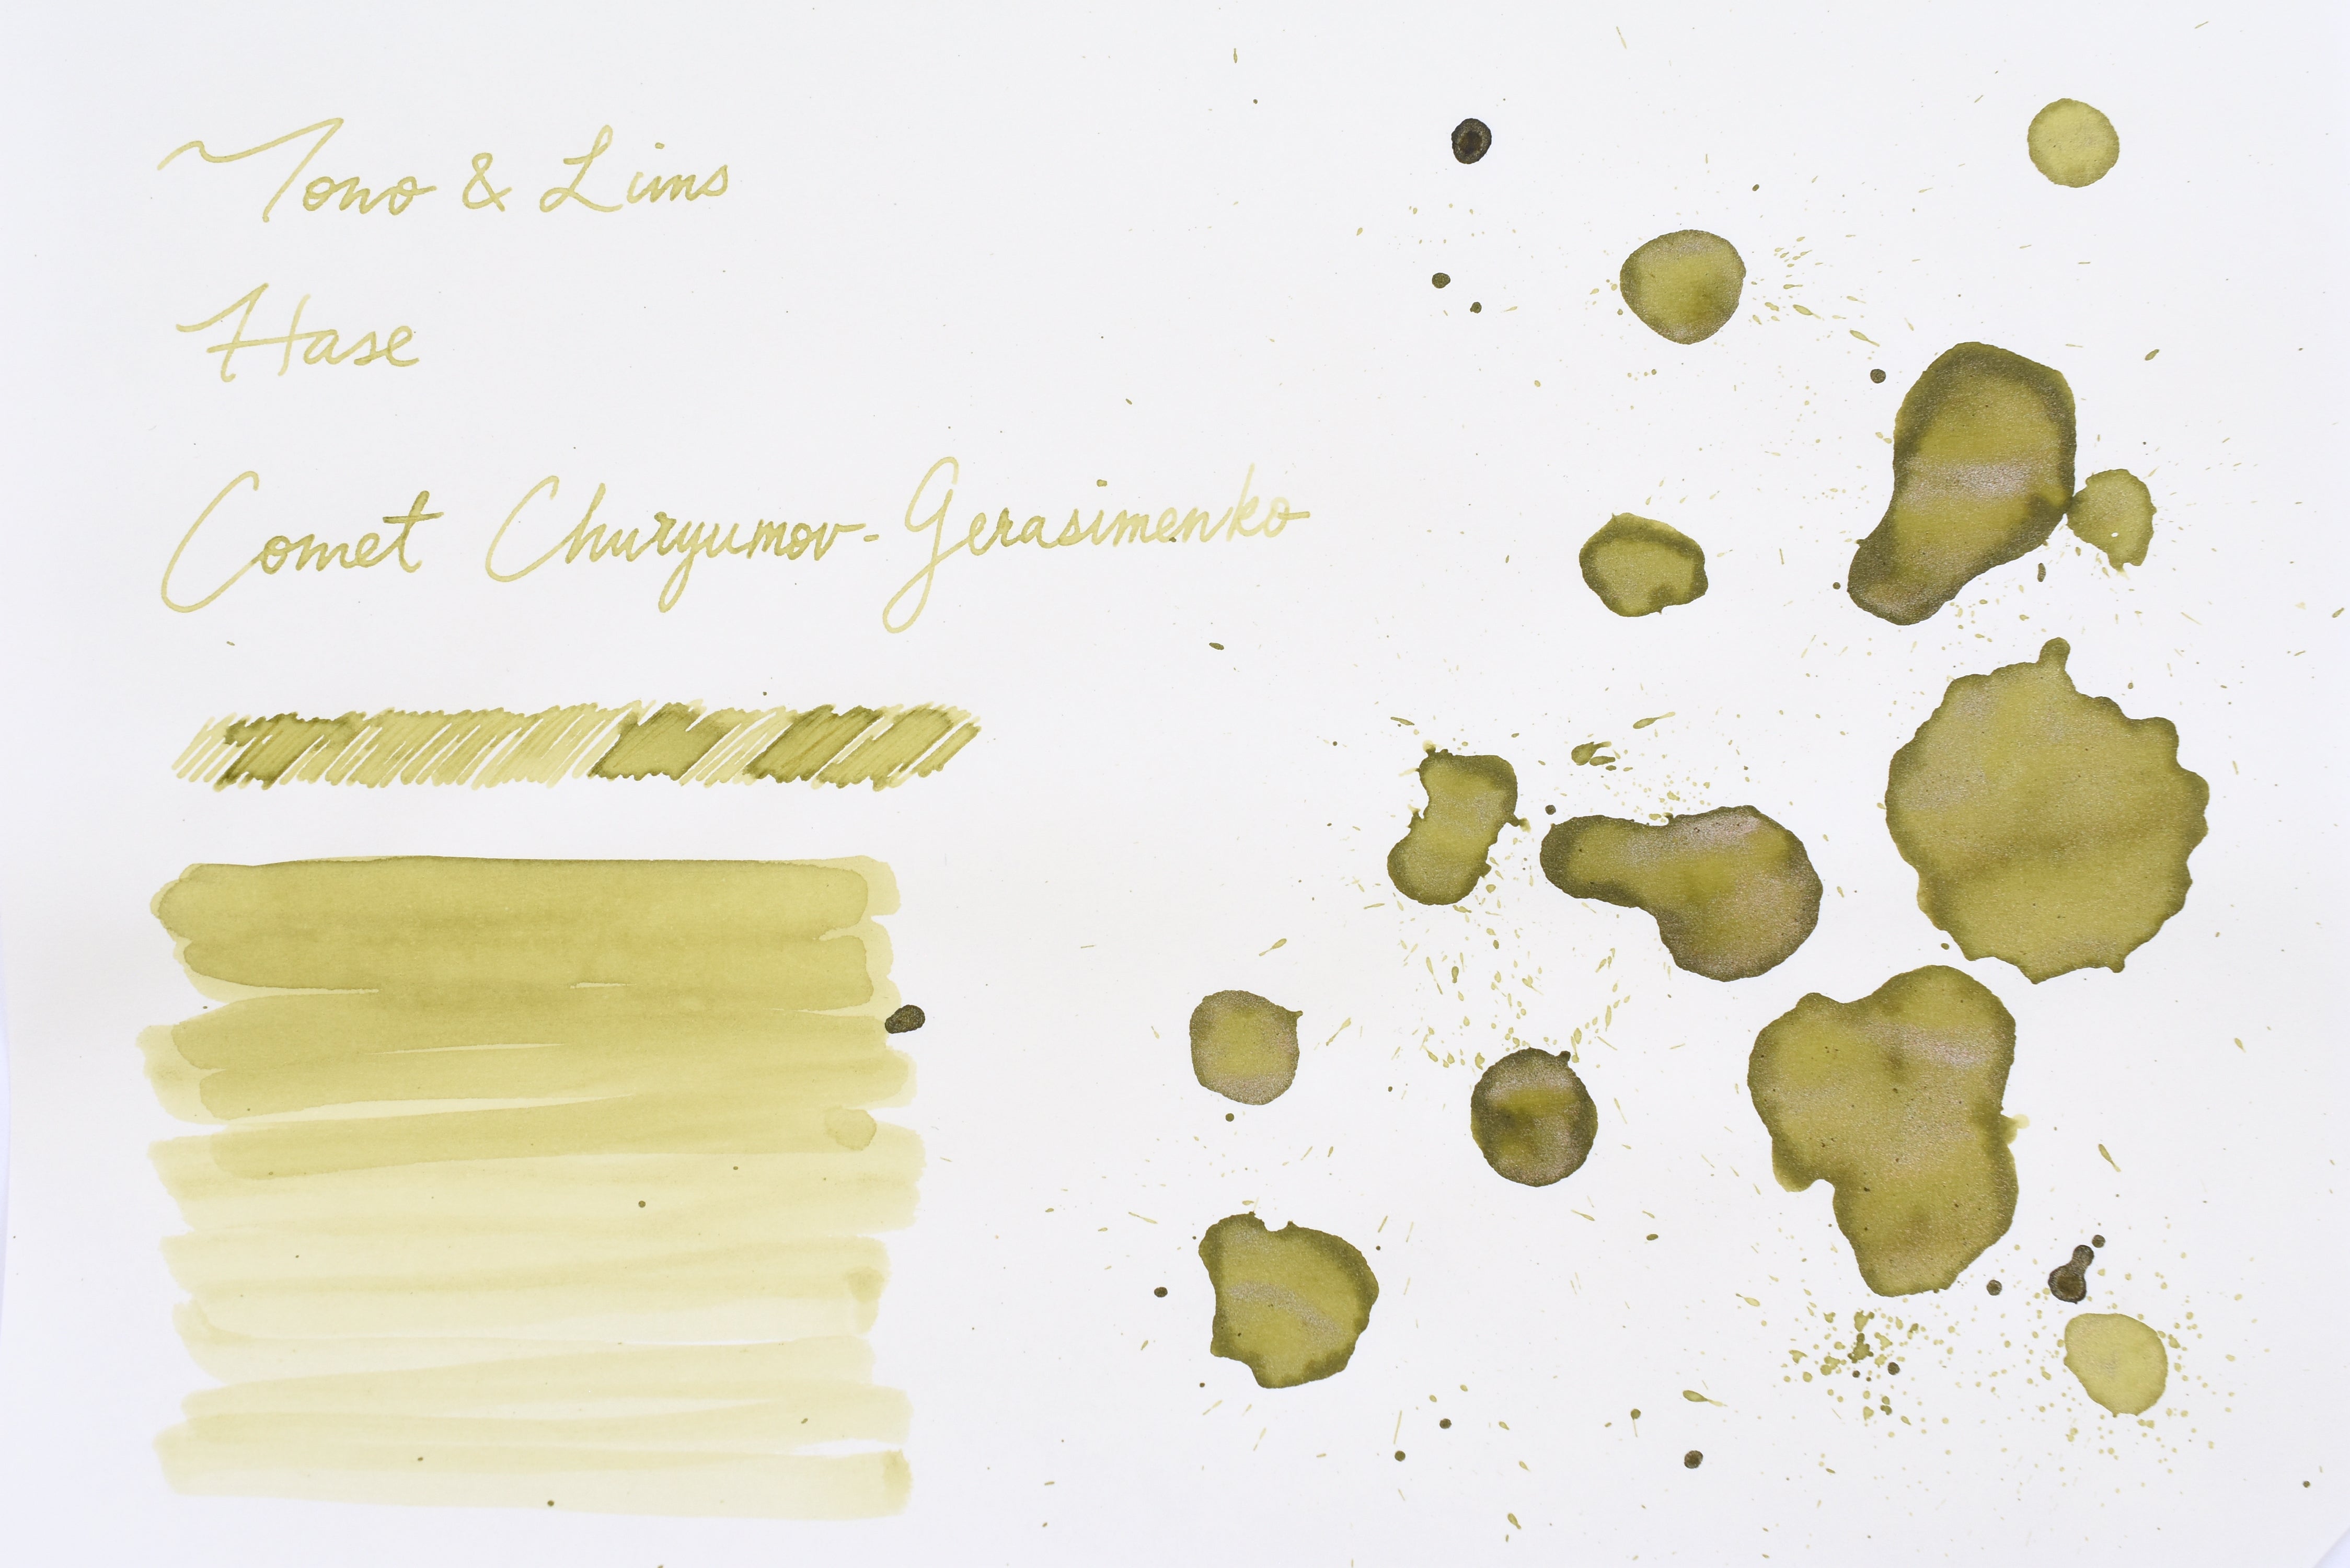 Tono & Lims
Hase
Comet Churyumov-Gerasimenko